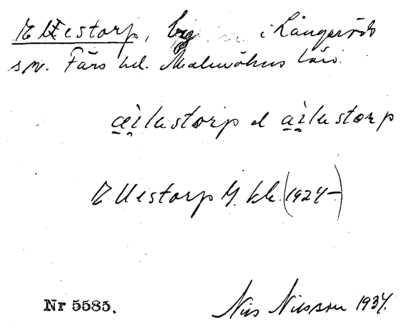 Ellestorp, by i Långaröds
sn. Färs hd. Malmöhus län.
æìlustorp el aìlustorp
Ellestorp G. kk. (1924-)
Nr 5585. Nils Nilsson 1934.